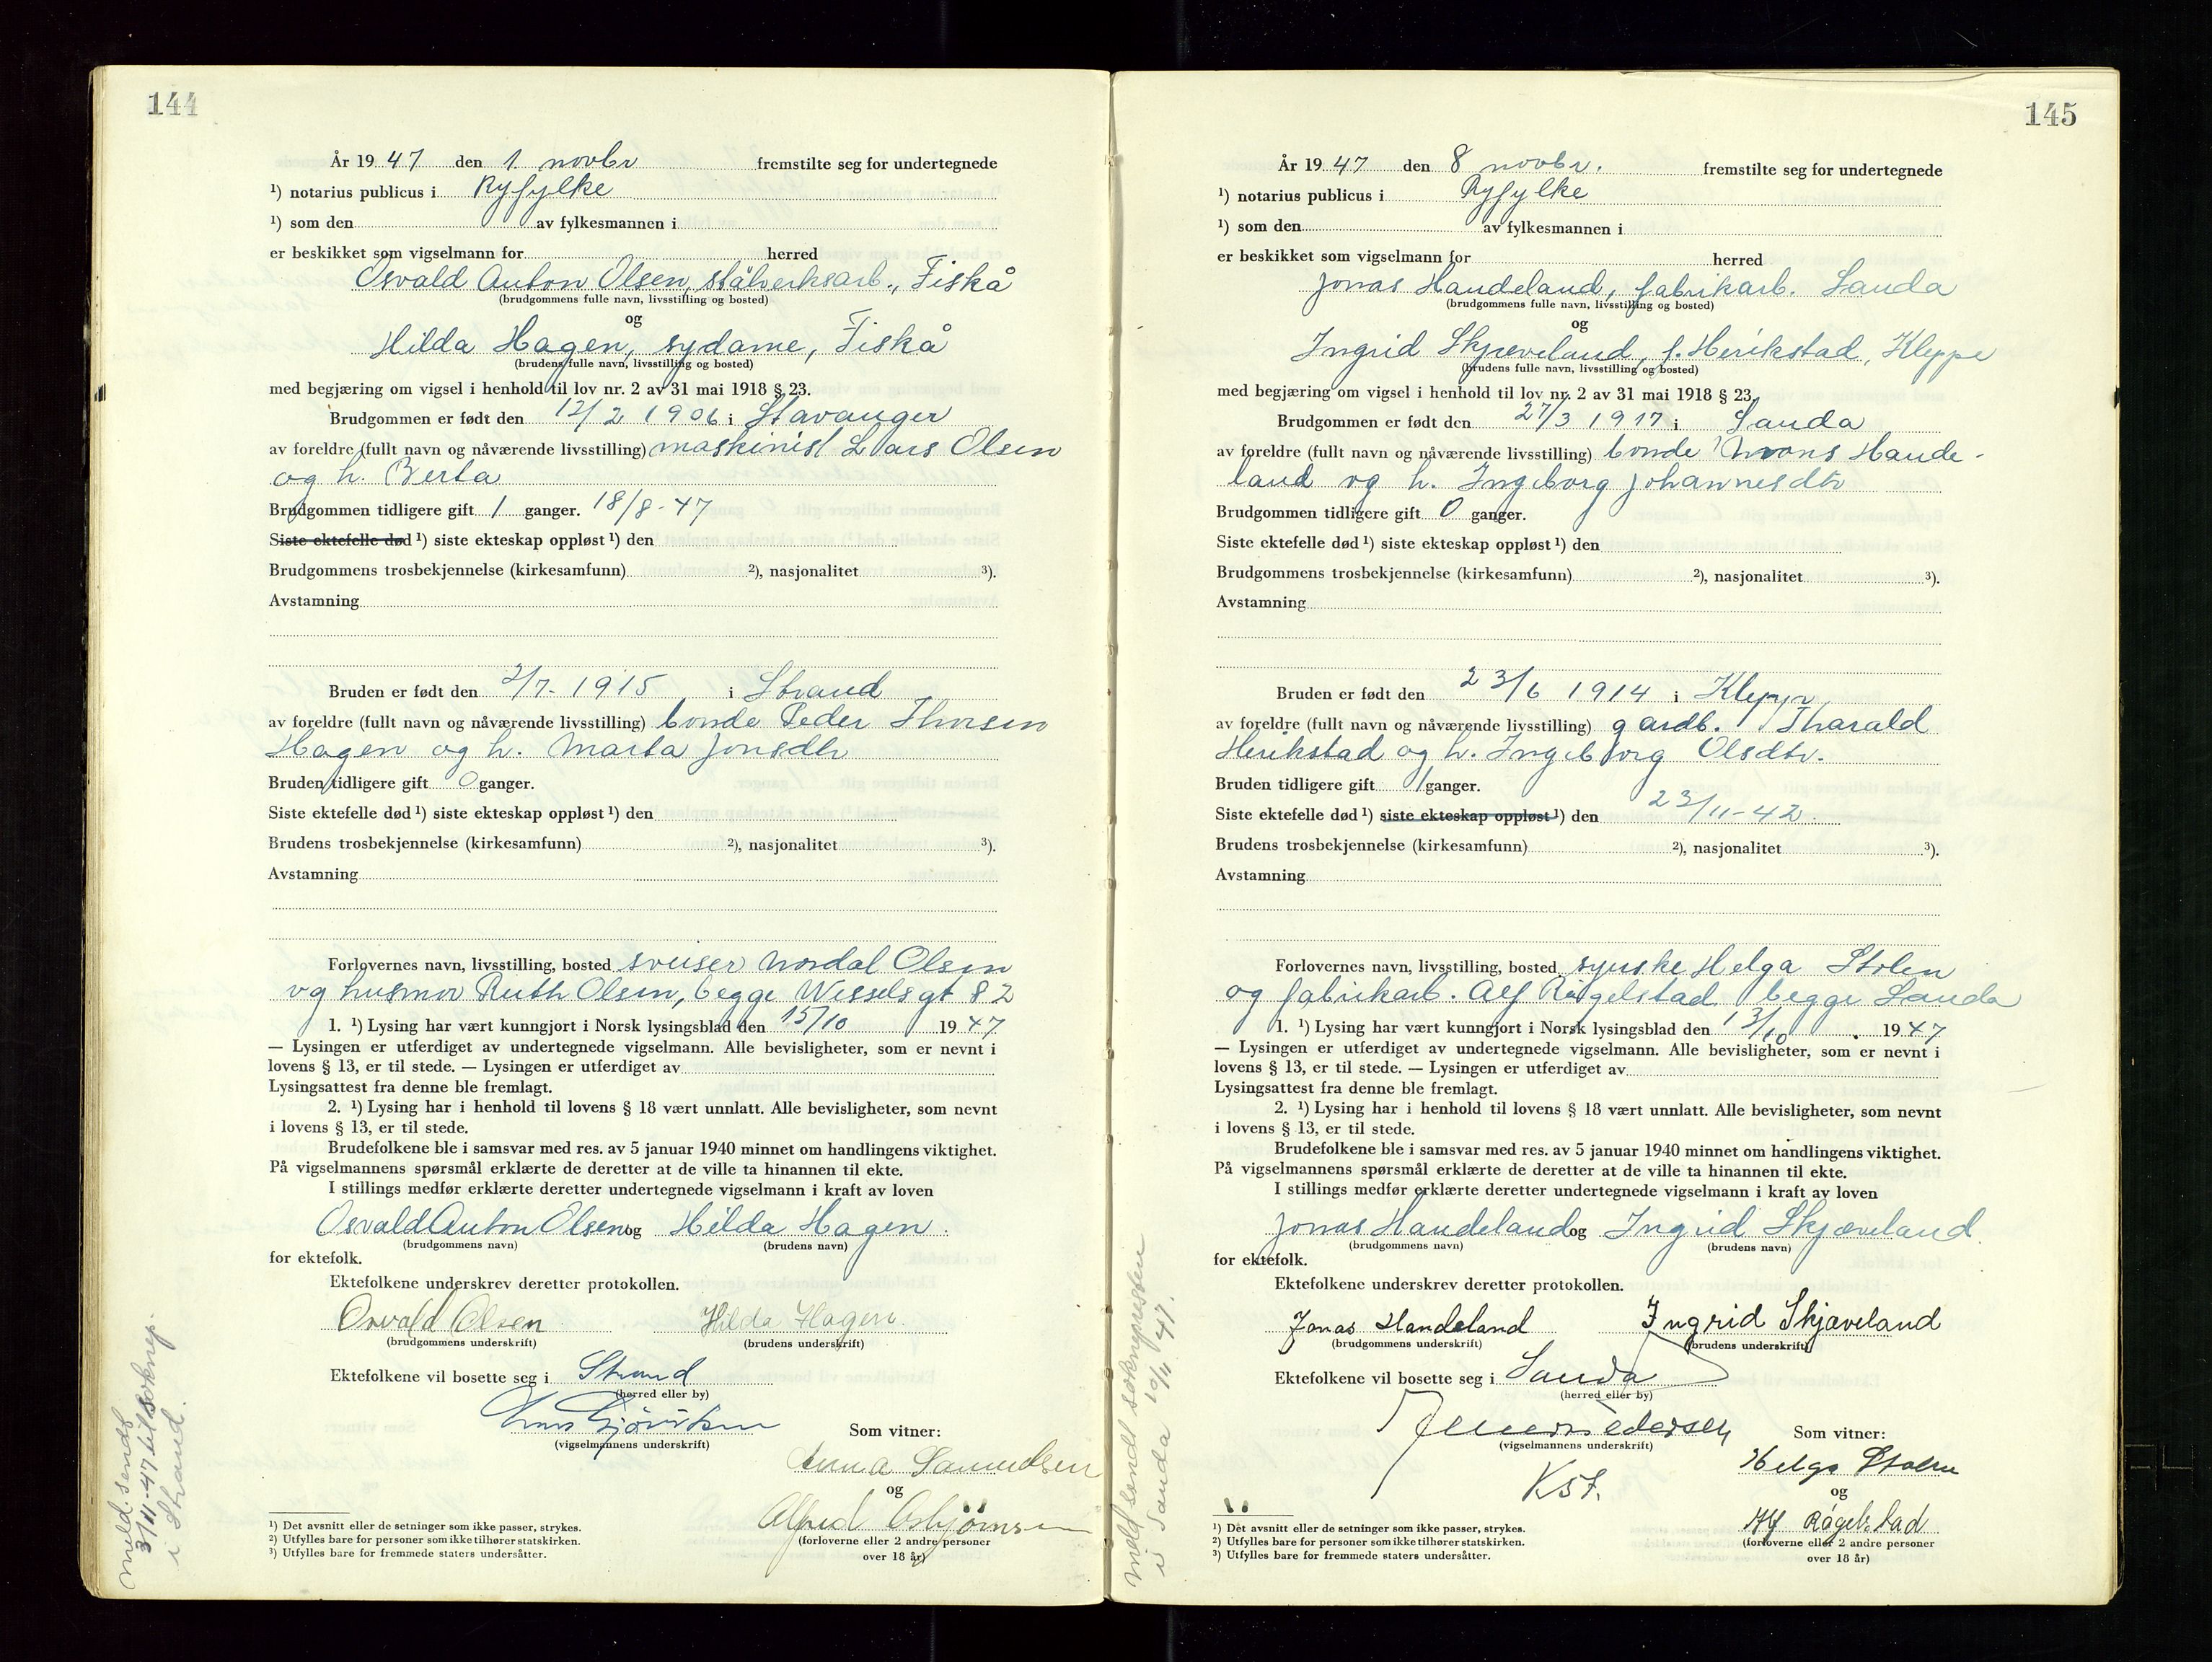 144
År 19 47 den 1. novbr fremstilte seg for undertegnede
¹) notarius publicus i Ryfylke
¹) som den av fylkesmannen i
er beskikket som vigselmann for herred
Osvald Anton Olsen, stålverksarb., Fiskå
(brudgommens fulle navn, livsstilling og bosted)
og
Hilda Hagen, sydame, Fiskå
(brudens fulle navn, livsstilling og bosted)
med begjæring om vigsel i henhold til lov nr. 2 av 31 mai 1918 § 23.
Brudgommen er født den 12/2 1906 i Stavanger
av foreldre (fullt navn og nåværende livsstilling) maskinist Lars Olsen
og h. Berta
Brudgommen tidligere gift 1 ganger. 18/8-47
Siste ektefelle død ¹) siste ekteskap oppløst ¹) den
Brudgommens trosbekjennelse (kirkesamfunn) ²), nasjonalitet ³).
Avstamning
Bruden er født den 2/7-1915 i Strand
av foreldre (fullt navn og nåværende livsstilling) bonde Peder Thorsen
Hagen og h. Marta Jonsdtr
Bruden tidligere gift 0 ganger.
Siste ektefelle død ¹) siste ekteskap oppløst ¹) den
Brudens trosbekjennelse (kirkesamfunn) ²), nasjonalitet ³).
Avstamning
Forlovernes navn, livsstilling, bosted sveiser Nordal Olsen
og husmor Ruth Olsen, begge Wesselsgt 82
1. ¹) Lysing har vært kunngjort i Norsk lysingsblad den 15/10 19 47
— Lysingen er utferdiget av undertegnede vigselmann. Alle bevisligheter, som er nevnt i
lovens § 13, er til stede. — Lysingen er utferdiget av
Lysingsattest fra denne ble fremlagt.
2. ¹) Lysing har i henhold til lovens § 18 vært unnlatt. Alle bevisligheter, som nevnt
i lovens § 13, er til stede.
Brudefolkene ble i samsvar med res. av 5 januar 1940 minnet om handlingens viktighet.
På vigselmannens spørsmål erklærte de deretter at de ville ta hinannen til ekte.
I stillings medfør erklærte deretter undertegnede vigselmann i kraft av loven
Osvald Anton Olsen og Hilda Hagen.
(brudgommens navn) (brudens navn)
for ektefolk.
Ektefolkene underskrev deretter protokollen.
Osvald Olsen Hilda Hagen.
(brudgommens underskrift) (brudens underskrift)
Ektefolkene vil bosette seg i Strand
(herred eller by)
(vigselmannens underskrift)
Som vitner:
Anna Samuelsen
og
Alfred Asbjørnsen
(forloverne eller 2 andre personer
over 18 år)
¹) Det avsnitt eller de setninger som ikke passer, strykes.
²) Utfylles bare for personer som ikke tilhører statskirken.
³) Utfylles bare for fremmede staters undersåtter.
meld. sendt
3/11-47 til soknepr.
i Strand.
145
År 19 47 den 8 novbr. fremstilte seg for undertegnede
¹) notarius publicus i Ryfylke
¹) som den av fylkesmannen i
er beskikket som vigselmann for herred
Jonas Handeland, fabrikarb. Sauda
(brudgommens fulle navn, livsstilling og bosted)
og
Ingrid Skjæveland, f. Herikstad, Kleppe
(brudens fulle navn, livsstilling og bosted)
med begjæring om vigsel i henhold til lov nr. 2 av 31 mai 1918 § 23.
Brudgommen er født den 27/3 1917 i Sauda
av foreldre (fullt navn og nåværende livsstilling) bonde Mons Hande-
land og h. Ingeborg Johannesdtr
Brudgommen tidligere gift 0 ganger.
Siste ektefelle død ¹) siste ekteskap oppløst ¹) den
Brudgommens trosbekjennelse (kirkesamfunn) ²), nasjonalitet ³).
Avstamning
Bruden er født den 23/6 1914 i Klepp
av foreldre (fullt navn og nåværende livsstilling) gardb. Tharald
Herikstad og h. Ingeborg Olsdtr.
Bruden tidligere gift 1 ganger.
Siste ektefelle død ¹) siste ekteskap oppløst ¹) den 23/11-42.
Brudens trosbekjennelse (kirkesamfunn) ²), nasjonalitet ³).
Avstamning
Forlovernes navn, livsstilling, bosted syerske Helga Stølen
og fabrikarb. Alf Rågelstad begge Sauda
1. ¹) Lysing har vært kunngjort i Norsk lysingsblad den 13/10 19 47
— Lysingen er utferdiget av undertegnede vigselmann. Alle bevisligheter, som er nevnt i
lovens § 13, er til stede. — Lysingen er utferdiget av
Lysingsattest fra denne ble fremlagt.
2. ¹) Lysing har i henhold til lovens § 18 vært unnlatt. Alle bevisligheter, som nevnt
i lovens § 13, er til stede.
Brudefolkene ble i samsvar med res. av 5 januar 1940 minnet om handlingens viktighet.
På vigselmannens spørsmål erklærte de deretter at de ville ta hinannen til ekte.
I stillings medfør erklærte deretter undertegnede vigselmann i kraft av loven
Jonas Handeland og Ingrid Skjæveland.
(brudgommens navn) (brudens navn)
for ektefolk.
Ektefolkene underskrev deretter protokollen.
Jonas Handeland Ingrid Skjæveland
(brudgommens underskrift) (brudens underskrift)
Ektefolkene vil bosette seg i Sauda
(herred eller by)
(vigselmannens underskrift)
Kst.
Som vitner:
Helga Stølen
og
Alf Rågelstad
(forloverne eller 2 andre personer
over 18 år)
¹) Det avsnitt eller de setninger som ikke passer, strykes.
²) Utfylles bare for personer som ikke tilhører statskirken.
³) Utfylles bare for fremmede staters undersåtter.
meld. sendt soknepresten
i Sauda 10/11 47.